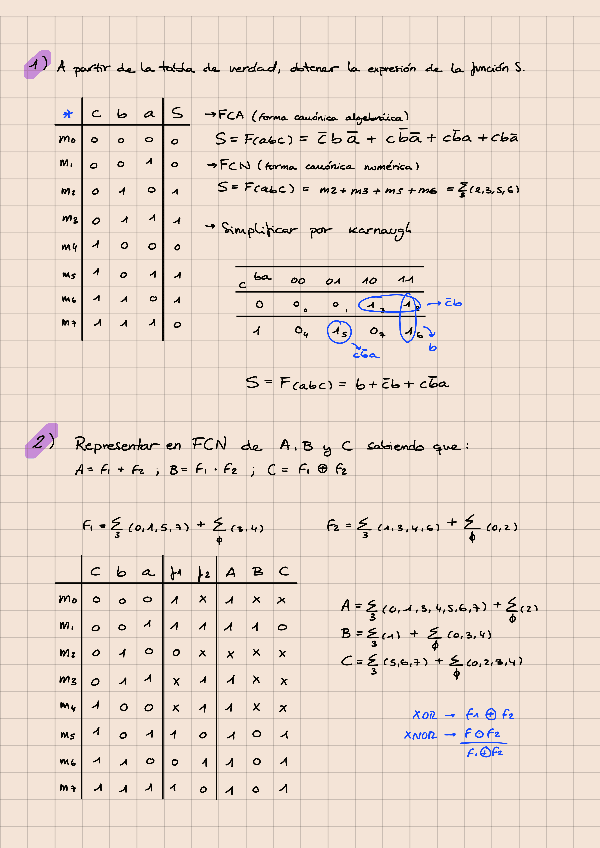 1) A partir de la tabla de verdad, obtener la expresión de la función S.
* c b a S
m0 0 0 0 0
m1 0 0 1 0
m2 0 1 0 1
m3 0 1 1 1
m4 1 0 0 0
m5 1 0 1 1
m6 1 1 0 1
m7 1 1 1 0
→ FCA (forma canónica algebráica)
S = F(abc) = c̄ b ā + c b̄ ā + c b̄ a + c b ā
→ FCN (forma canónica numérica)
S = F(abc) = m2 + m3 + m5 + m6 = Σ3 (2,3,5,6)
→ Simplificar por Karnaugh
c ba 00 01 10 11
0 0₀ 0₁ 1₂ 1₃ → c̄b
1 0₄ 1₅ 0₇ 1₆
c b̄ a
b
S = F(abc) = b + c̄b + c b̄ a
2) Representar en FCN de A, B y C sabiendo que:
A = F1 + F2 ; B = F1 · F2 ; C = F1 ⊕ F2
F1 = Σ3 (0,1,5,7) + Σϕ (3,4)
F2 = Σ3 (1,3,4,6) + Σϕ (0,2)
c b a f1 f2 A B C
m0 0 0 0 1 x 1 x x
m1 0 0 1 1 1 1 1 0
m2 0 1 0 0 x x x x
m3 0 1 1 x 1 1 x x
m4 1 0 0 x 1 1 x x
m5 1 0 1 1 0 1 0 1
m6 1 1 0 0 1 1 0 1
m7 1 1 1 1 0 1 0 1
A = Σ3 (0,1,3,4,5,6,7) + Σϕ (2)
B = Σ3 (1) + Σϕ (0,3,4)
C = Σ3 (5,6,7) + Σϕ (0,2,3,4)
XOR → F1 ⊕ F2
XNOR → F ⊙ F2
F1 ⊕ F2